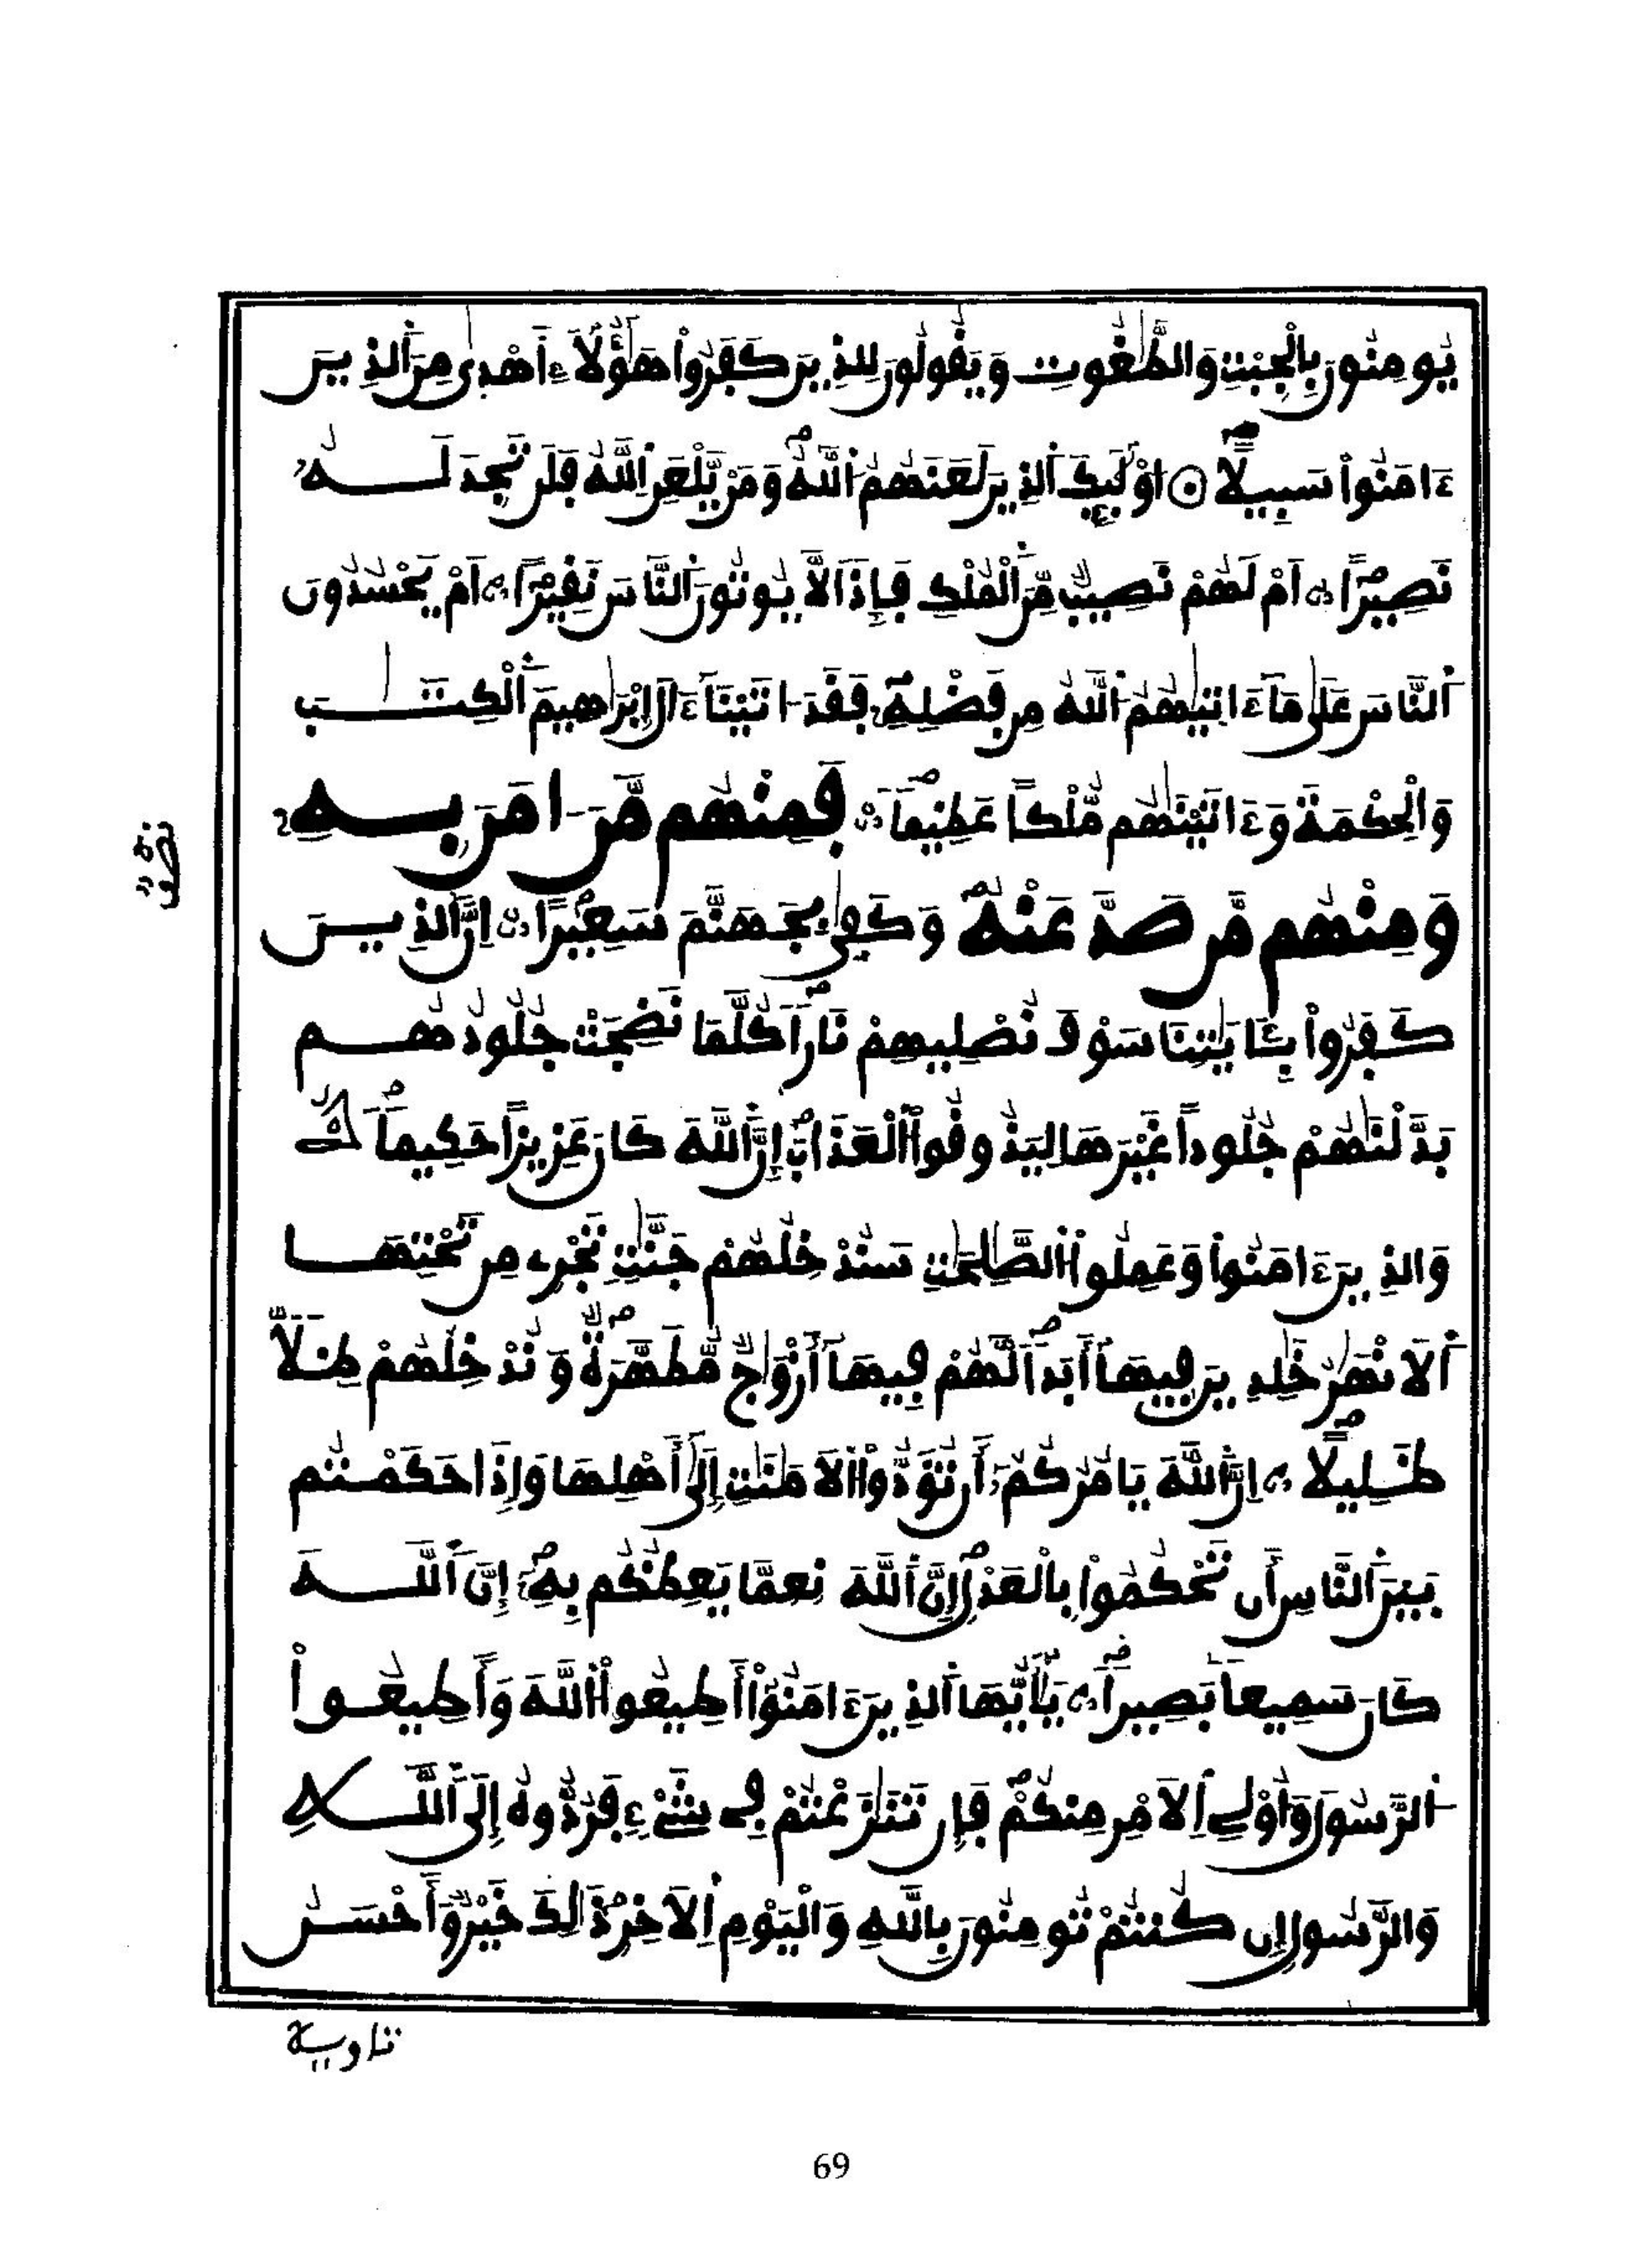 يُومِنُونَ بِالْجِبْتِ وَالطَّٰغُوتِ وَيَقُولُونَ لِلذِينَ كَفَرُواْ هَٰٓؤُلَآءِ أَهْدَىٰ مِنَ ٱلذِينَ
ءَامَنُواْ سَبِيلًا ۝ اوْلَٰٓئِكَ ٱلذِينَ لَعَنَهُمُ ٱللَّهُ وَمَنْ يَّلْعَنِ ٱللَّهُ فَلَن تَجِدَ لَهُۥ
نَصِيرًا ۝ اَمْ لَهُمْ نَصِيبٌ مِّنَ ٱلْمُلْكِ فَإِذاً لَّا يُوتُونَ ٱلنَّاسَ نَقِيرًا ۝ اَمْ يَحْسُدُونَ
ٱلنَّاسَ عَلَىٰ مَآ ءَاتَيٰهُمُ ٱللَّهُ مِن فَضْلِهِۦ فَقَدَ اتَيْنَآ ءَالَ إِبْرَٰهِيمَ ٱلْكِتَٰبَ
وَالْحِكْمَةَ وَءَاتَيْنَٰهُم مُّلْكاً عَظِيماً ۝ فَمِنْهُم مَّنَ امَنَ بِهِۦ
وَمِنْهُم مَّن صَدَّ عَنْهُ وَكَفَىٰ بِجَهَنَّمَ سَعِيرًا ۝ اِنَّ ٱلذِينَ
كَفَرُواْ بِـَٔايَٰتِنَا سَوْفَ نُصْلِيهِمْ نَاراً كُلَّمَا نَضِجَتْ جُلُودُهُم
بَدَّلْنَٰهُمْ جُلُوداً غَيْرَهَا لِيَذُوقُواْ ٱلْعَذَابَ إِنَّ ٱللَّهَ كَانَ عَزِيزاً حَكِيماً ۝
وَالذِينَ ءَامَنُواْ وَعَمِلُواْ ٱلصَّٰلِحَٰتِ سَنُدْخِلُهُمْ جَنَّٰتٍ تَجْرِے مِن تَحْتِهَا
ٱلَانْهَٰرُ خَٰلِدِينَ فِيهَآ أَبَداً لَّهُمْ فِيهَآ أَزْوَٰجٌ مُّطَهَّرَةٌ وَنُدْخِلُهُمْ ظِلّاً
ظَلِيلًا ۝ اِنَّ ٱللَّهَ يَامُرُكُمُۥٓ أَن تُؤَدُّواْ ٱلَامَٰنَٰتِ إِلَىٰٓ أَهْلِهَا وَإِذَا حَكَمْتُم
بَيْنَ ٱلنَّاسِ أَن تَحْكُمُواْ بِالْعَدْلِ إِنَّ ٱللَّهَ نِعِمَّا يَعِظُكُم بِهِۦٓ إِنَّ ٱللَّهَ
كَانَ سَمِيعاً بَصِيراً ۝ يَٰٓأَيُّهَا ٱلذِينَ ءَامَنُوٓاْ أَطِيعُواْ ٱللَّهَ وَأَطِيعُواْ
ٱلرَّسُولَ وَأُوْلِے ٱلَامْرِ مِنكُمْ فَإِن تَنَٰزَعْتُمْ فِے شَےْءٍ فَرُدُّوهُ إِلَى ٱللَّهِ
وَالرَّسُولِ إِن كُنتُمْ تُومِنُونَ بِاللَّهِ وَالْيَوْمِ ٱلَاخِرِ ذَٰلِكَ خَيْرٌ وَأَحْسَنُ
تاويلا
69